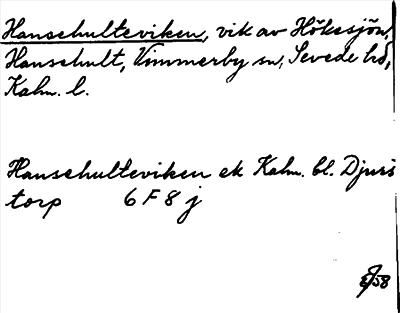 Hanschulteviken, vik av Höksjön,
Hanschult, Vimmerby sn, Sevede hd,
Kalm. l.
Hanschulteviken ek Kalm. bl. Djurs
torp 6 F 8 j
/58